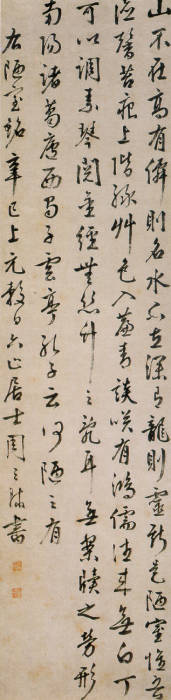 山不在高有僊則名水不在深有龍則靈斯是陋室惟吾
德馨苔痕上階綠艸色入簾青談咲有鴻儒往来無白丁
可以調素琴閱金經無絲竹之亂耳無案牘之勞形
南陽諸葛廬西蜀子雲亭孔子云何陋之有
右陋室銘辛巳上元日六止居士周之書